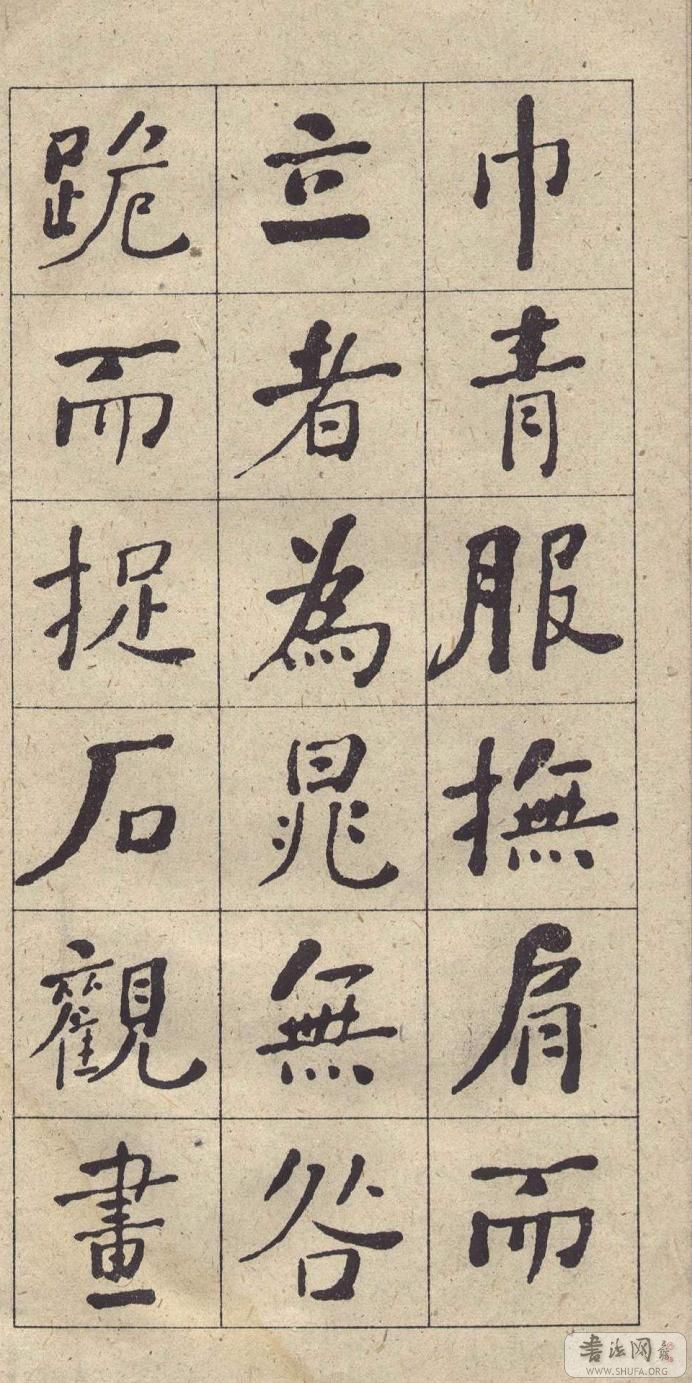 巾青服撫肩而
立者為晁無咎
跪而捉石觀畫
書法网
WWW.SHUFA.ORG